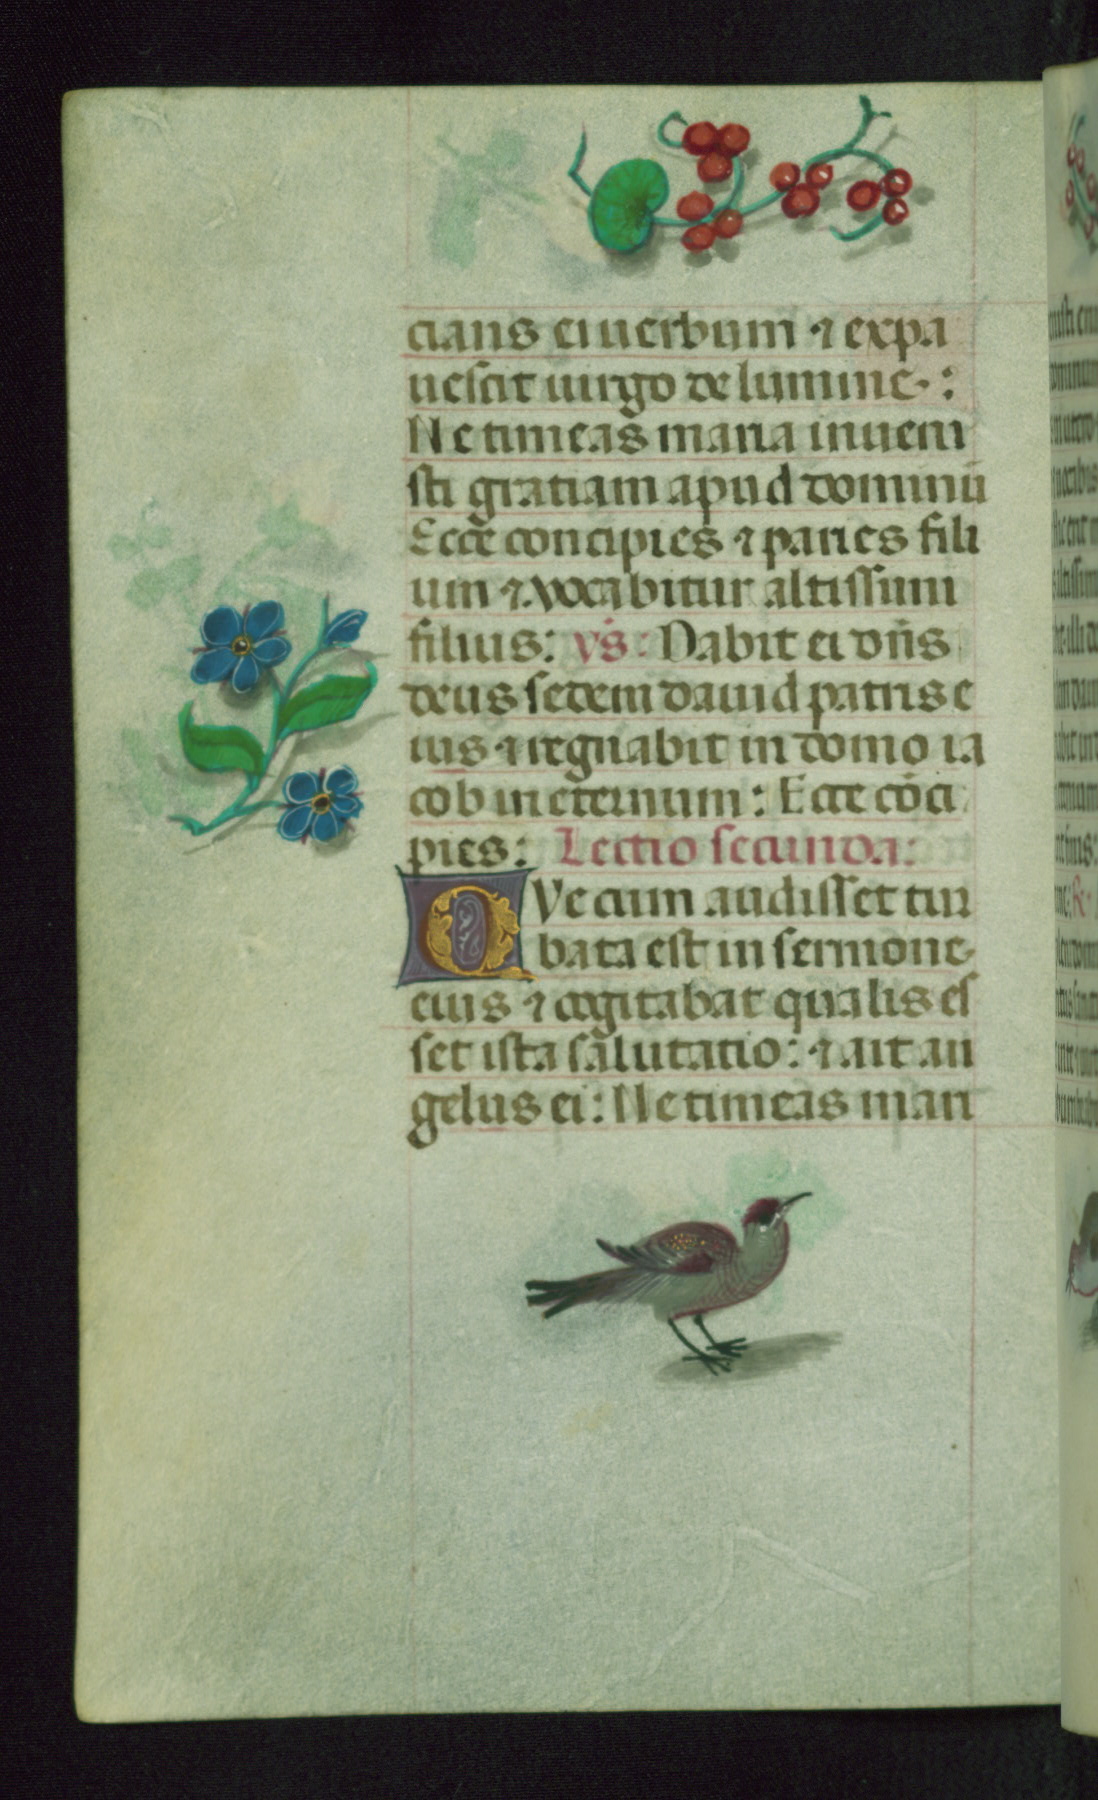 cians ei uerbum ⁊ expa
uescit uirgo de lumine:
Ne timeas maria inueni
sti gratiam apud dominū
Ecce concipies ⁊ paries fili
um ⁊ vocabitur altissimi
filius: vs̄: Dabit ei dn̄s
deus sedem dauid patris e
ius ⁊ regnabit in domo ia
cob in eternum: Ecce cōci
pies: Lectio secunda:
QVe cum audisset tur
bata est in sermone
eius ⁊ cogitabat qualis es
set ista salutatio: ⁊ ait an
gelus ei: Ne timeas mari